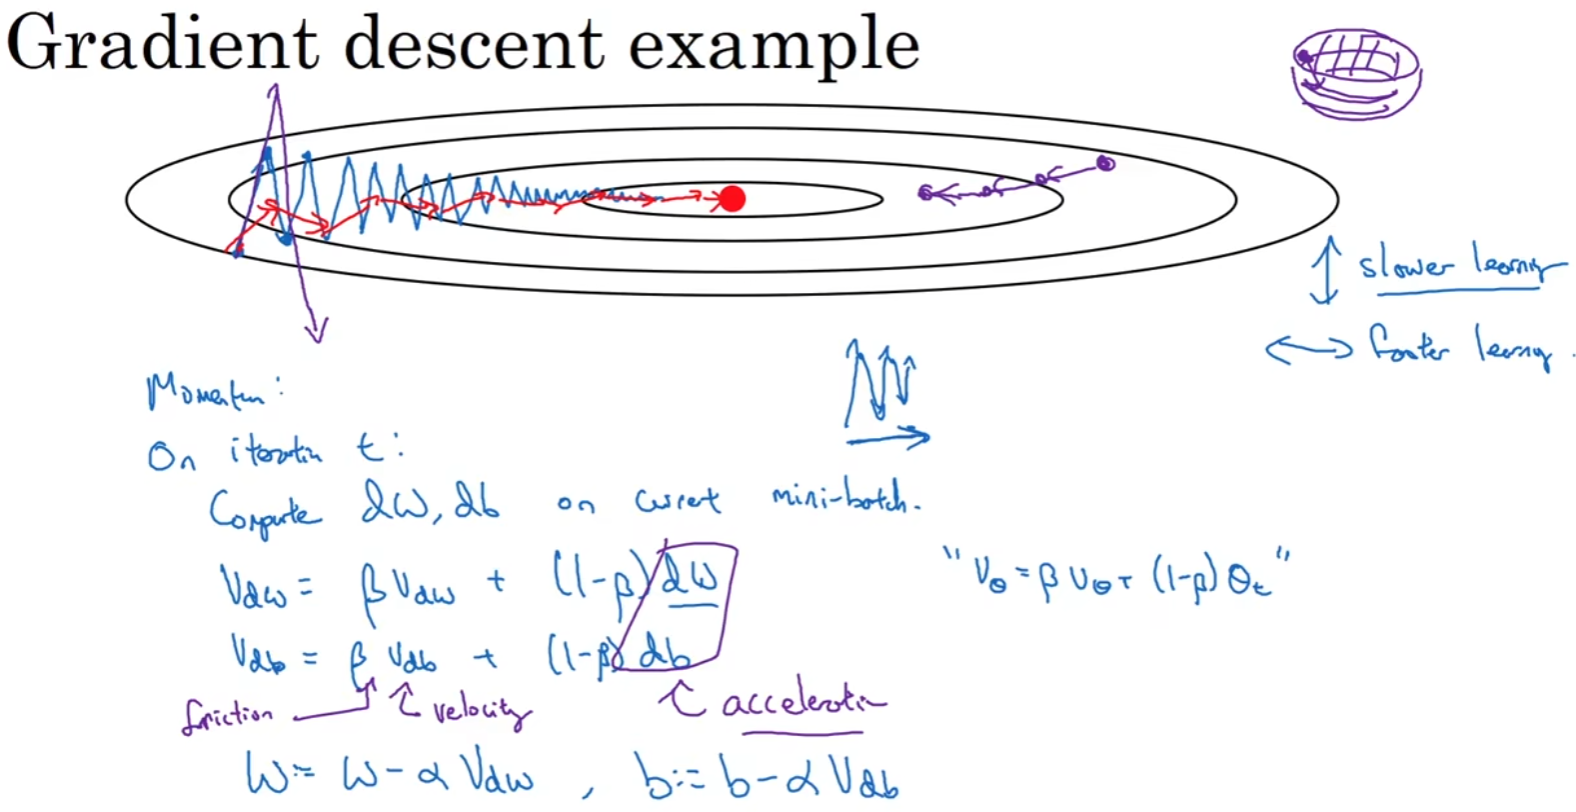 Gradient descent example
slower learning
faster learning.
Momentum:
On iteration t:
Compute dW, db on current mini-batch.
Vdw = βVdw + (1-β)dW
"Vθ = βVθ + (1-β)θt"
Vdb = βVdb + (1-β)db
friction velocity acceleration
W := W - αVdw , b := b - αVdb